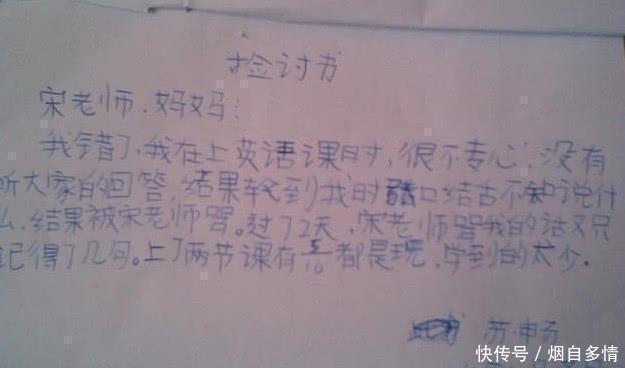 捡讨书
宋老师.妈妈：
我错了.我在上英语课时,很不专心,没有
听大家的回答,结果轮到我时口结舌不知说什
么,结果被宋老师骂。过了2天,宋老师骂我的话又只
记得了几句。上了两节课有5/10都是玩,学到的太少.
苏畅
快传号 / 烟自多情